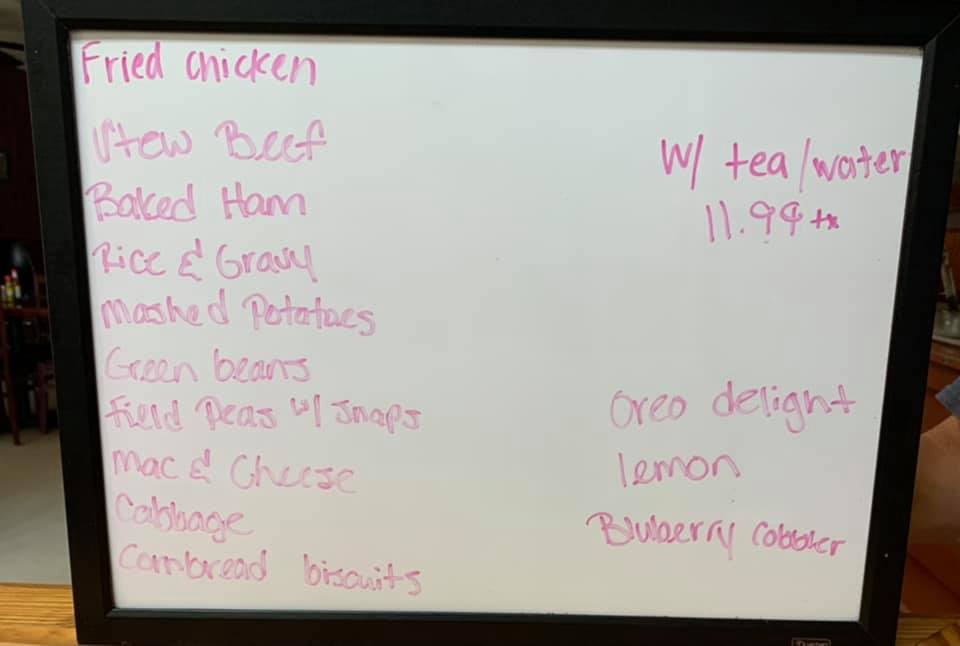 Fried chicken
Stew Beef
Baked Ham
Rice & Gravy
Mashed Potatoes
Green beans
Field Peas w/ snaps
Mac & Cheese
Cabbage
Cornbread biscuits
W/ tea/water
11.99 tx
Oreo delight
lemon
Bluberry cobbler